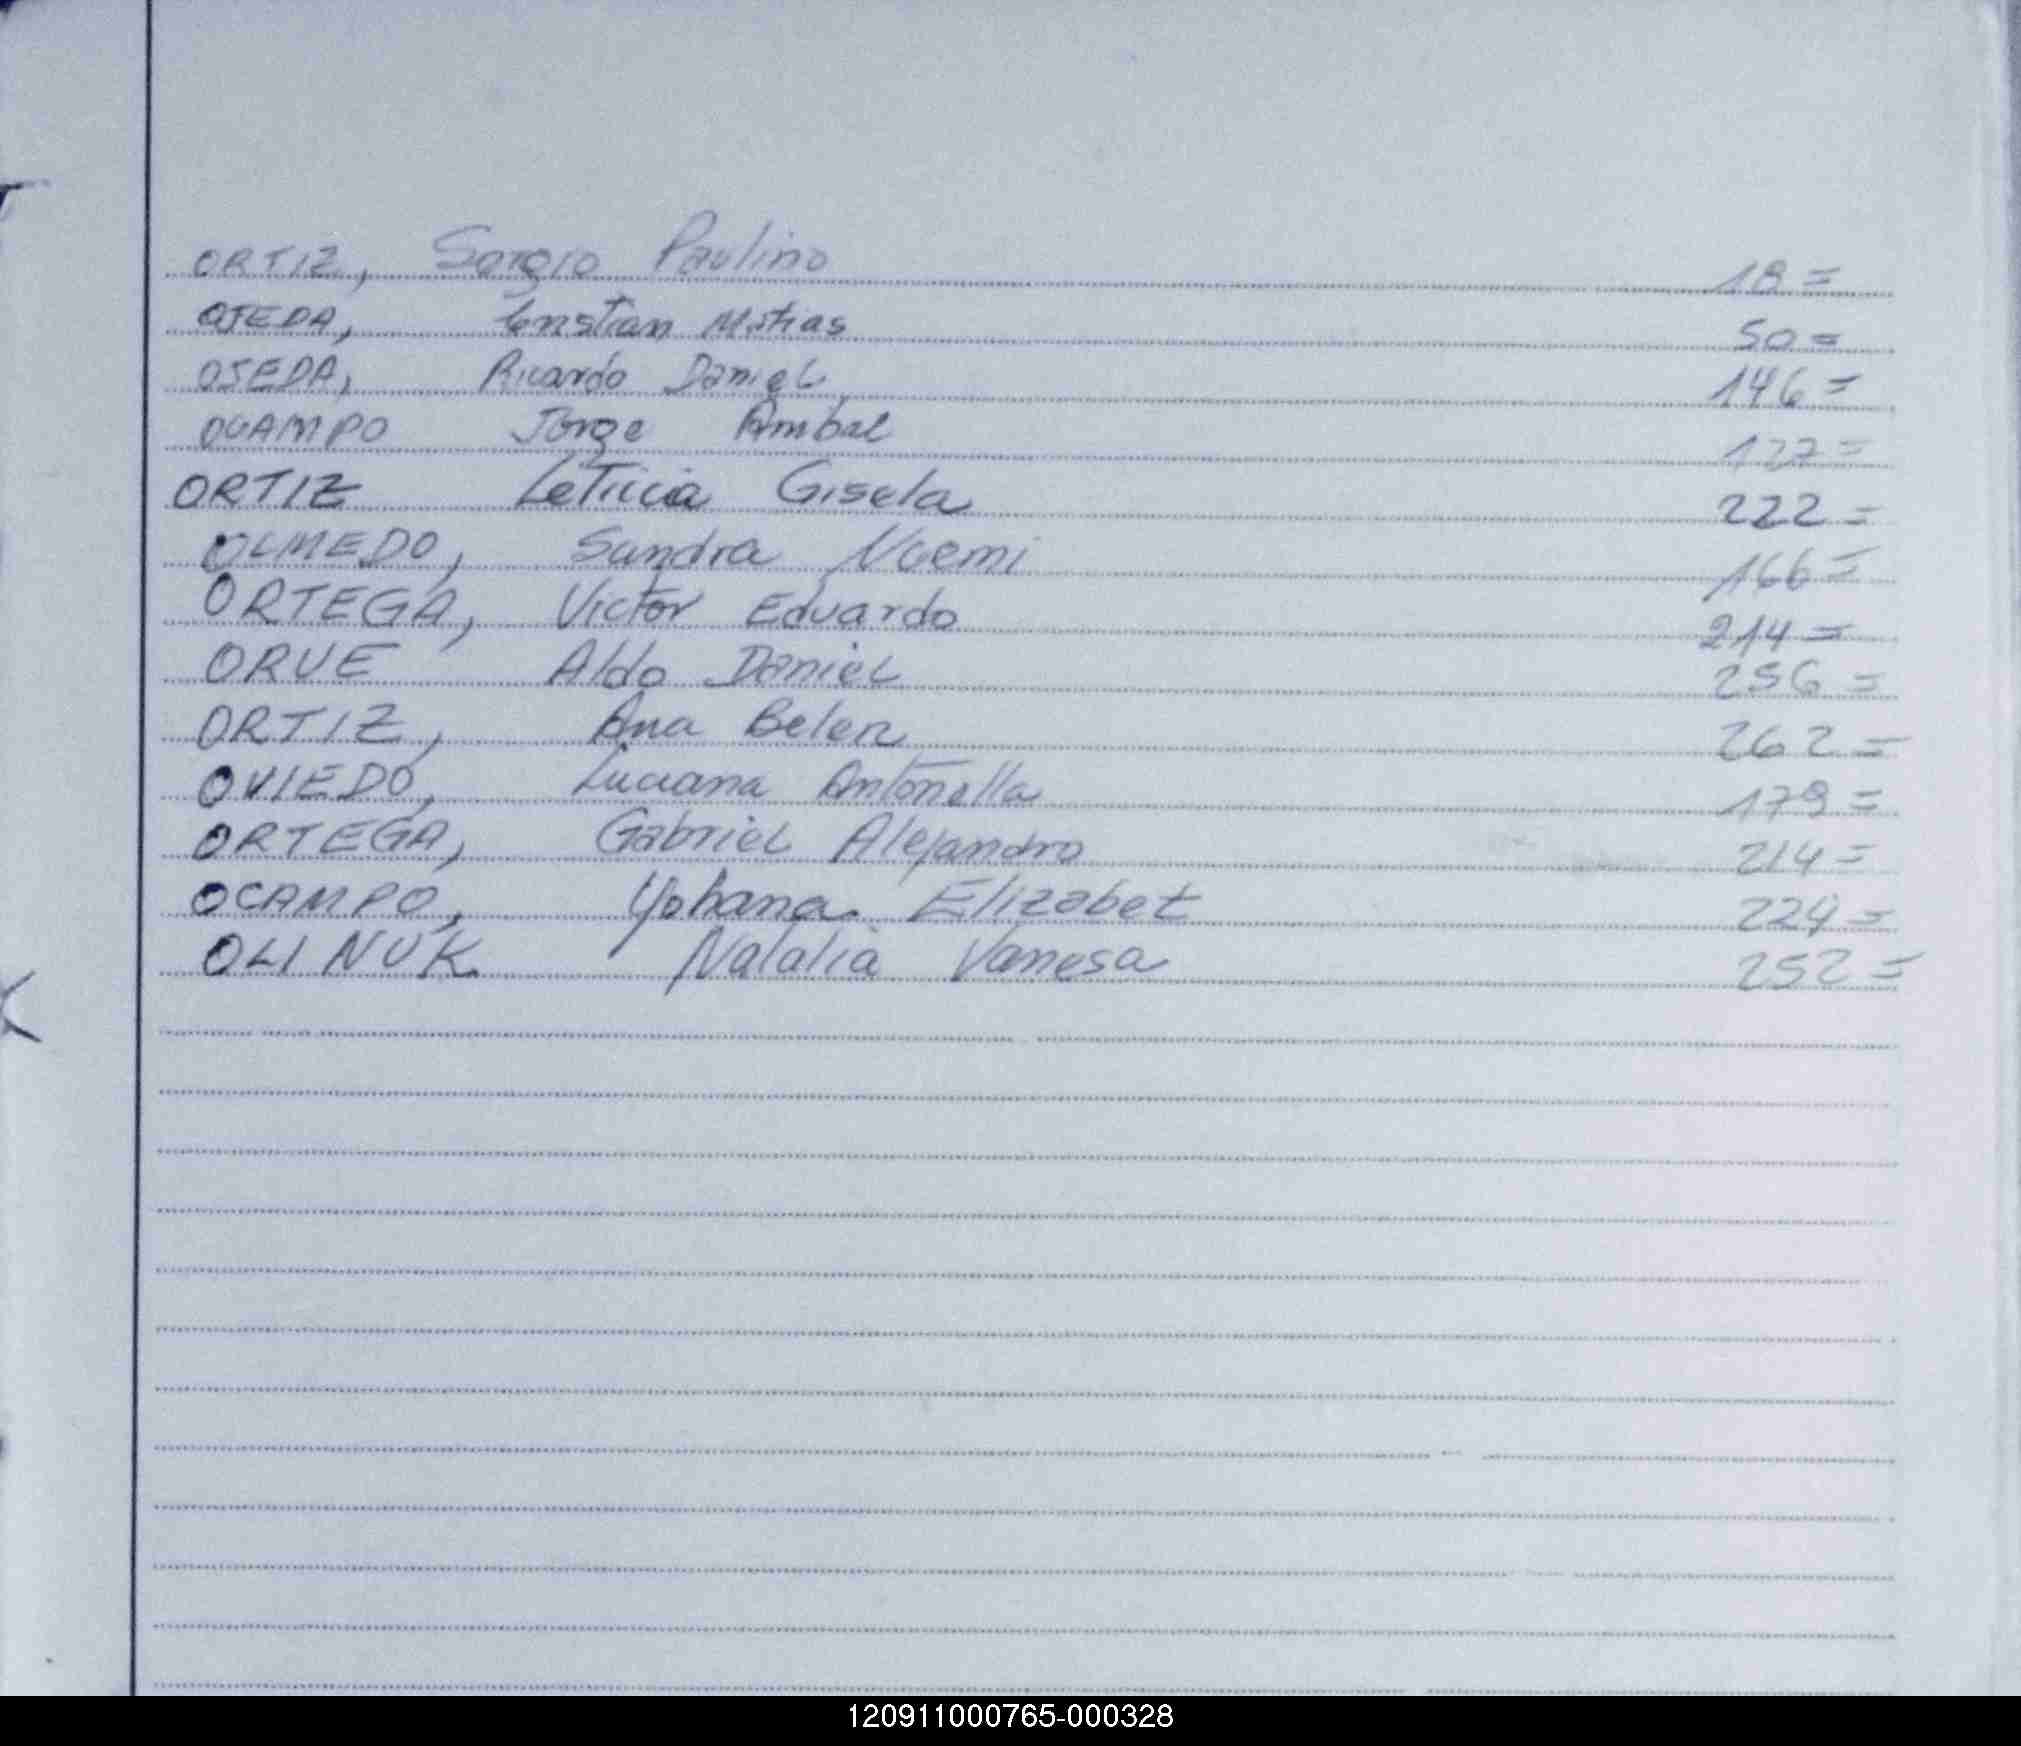 ORTIZ, Sergio Paulino 18=
OJEDA, Cristian Matias 50=
OJEDA, Ricardo Daniel 146=
OCAMPO Jorge Anibal 127=
ORTIZ Leticia Gisela 222=
OLMEDO, Sandra Noemi 166=
ORTEGA, Victor Eduardo 214=
ORUE Aldo Daniel 256=
ORTIZ, Ana Belen 262=
OVIEDO, Luciana Antonella 179=
ORTEGA, Gabriel Alejandro 214=
OCAMPO, Yohana Elizabet 224=
OLINUK Natalia Vanesa 252=
120911000765-000328